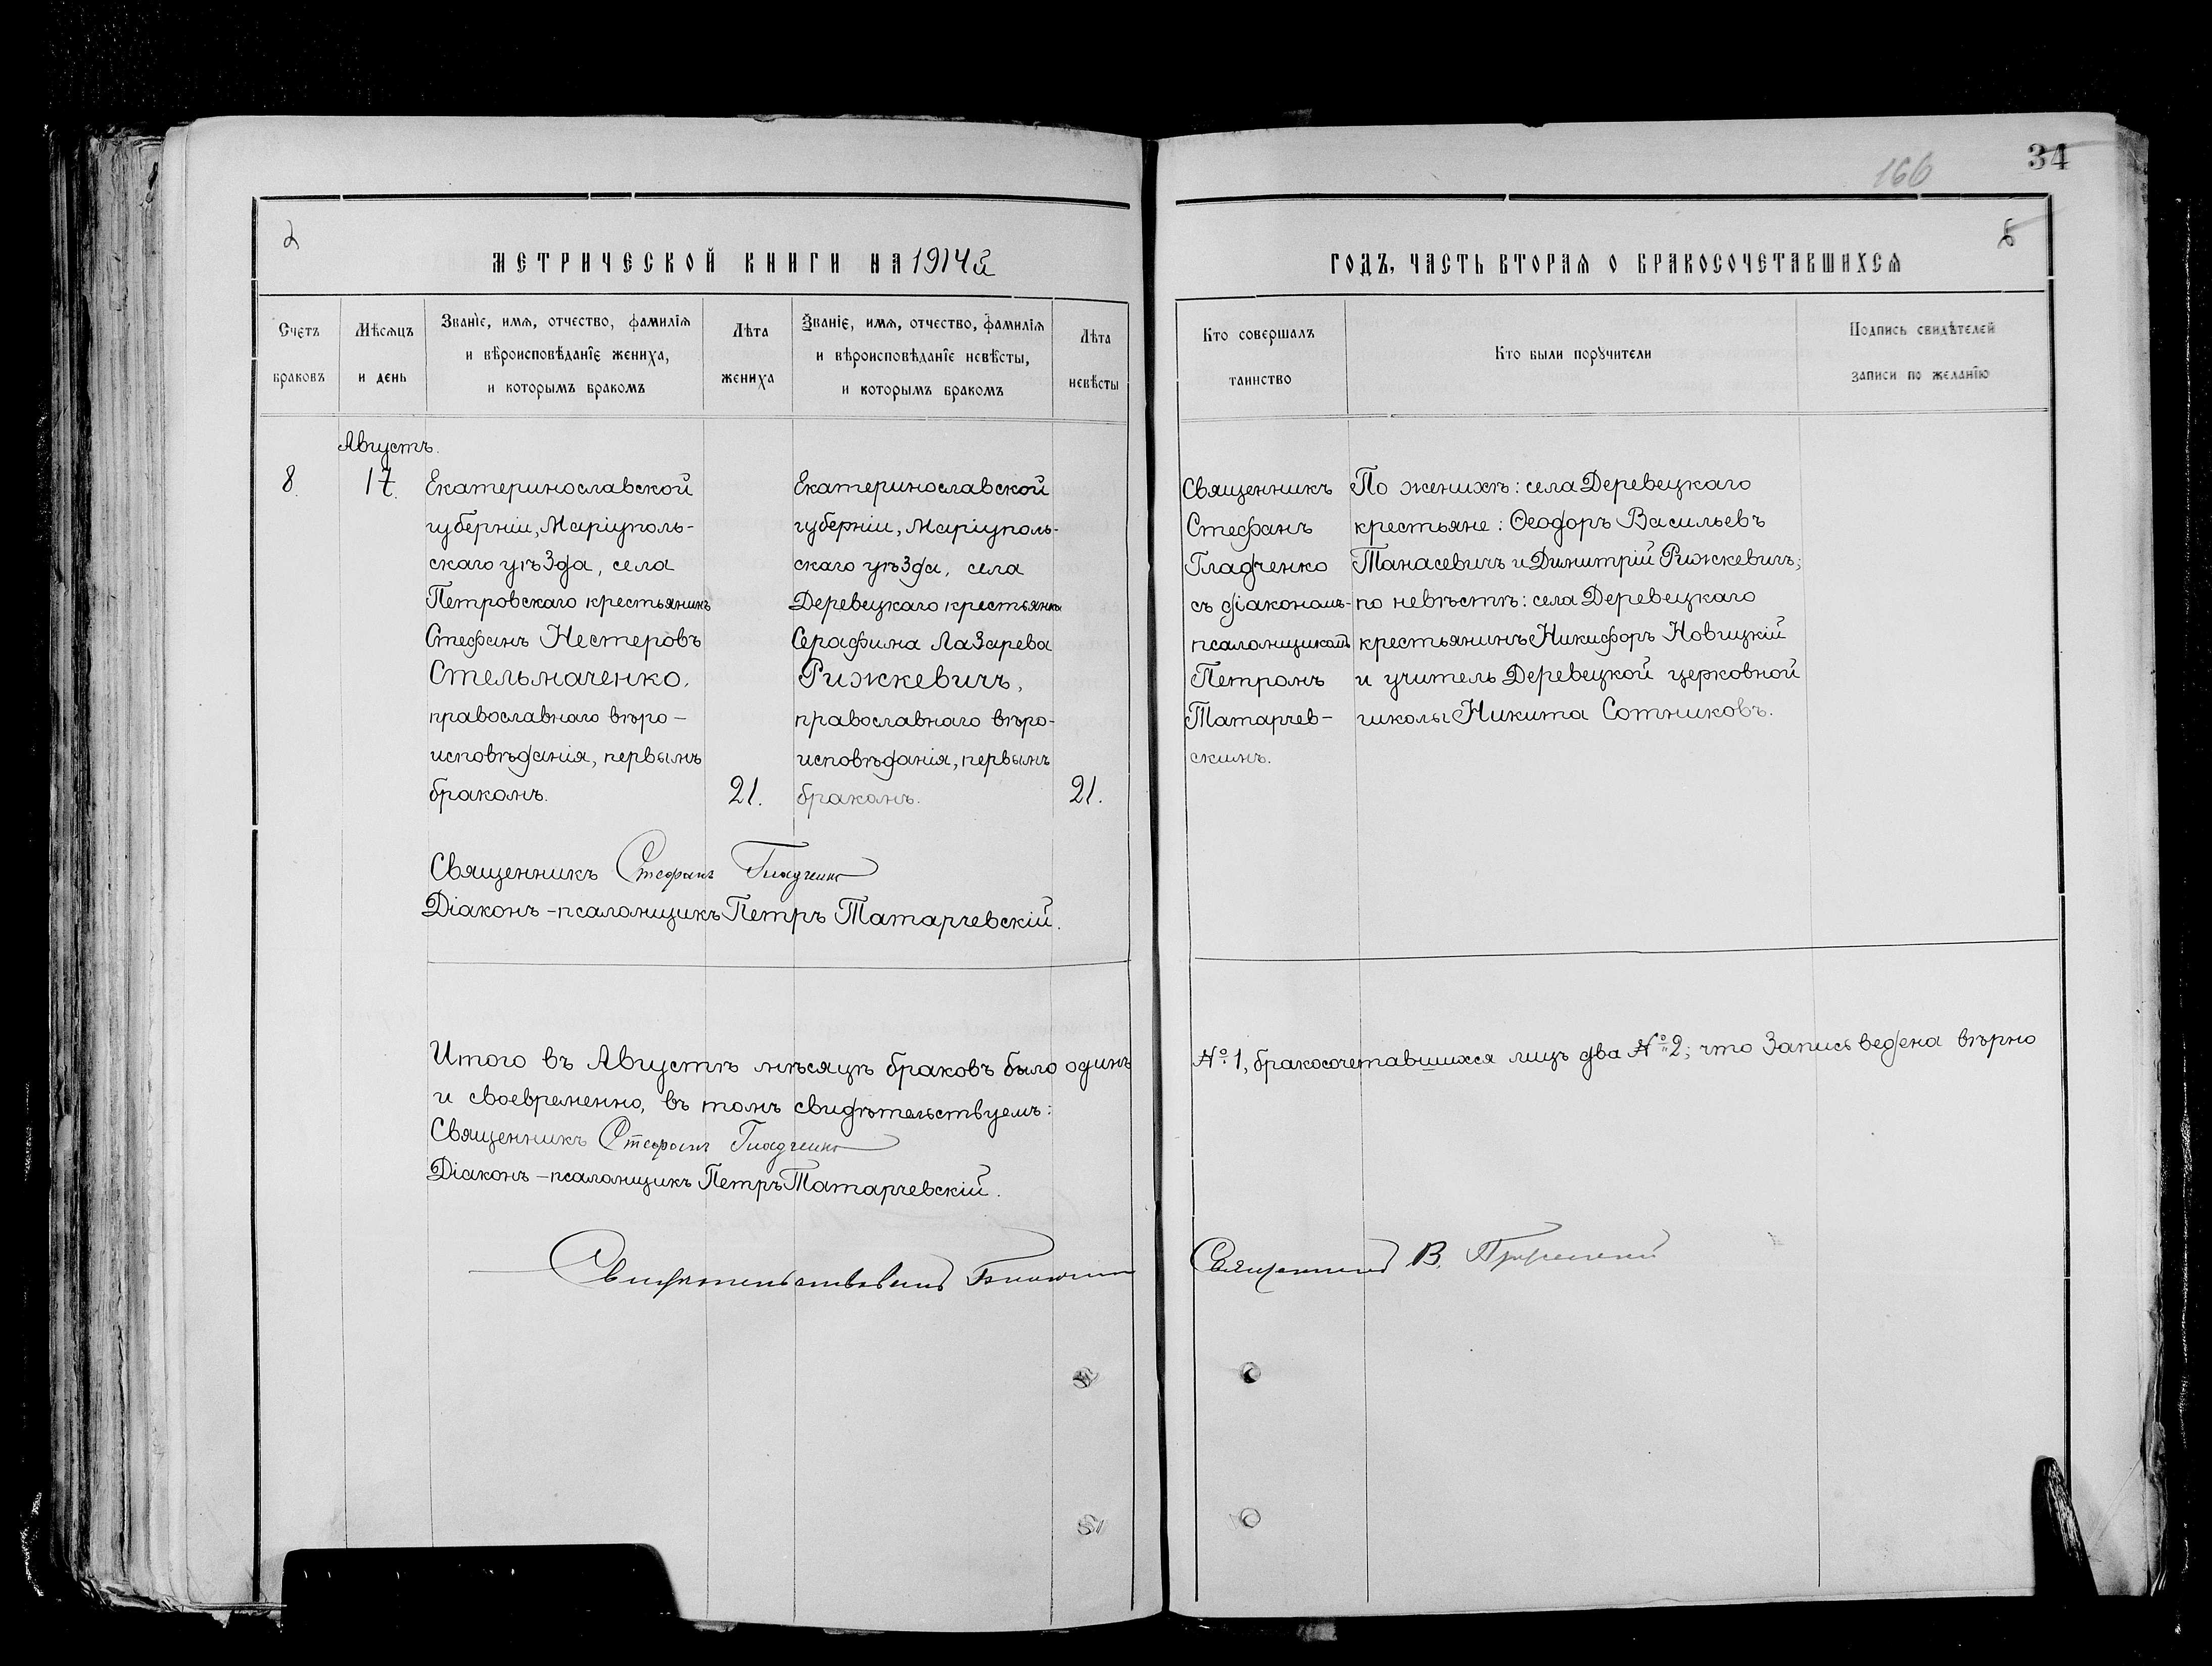 166
34
МЕТРИЧЕСКОЙ КНИГИ НА 1914й
ГОДЪ, ЧАСТЬ ВТОРАЯ О БРАКОСОЧЕТАВШИХСЯ
Счетъ
браковъ
Мѣсяцъ
и день
Званіе, имя, отчество, фамилія
и вѣроисповѣданіе жениха,
и которымъ бракомъ
Лѣта
жениха
Званіе, имя, отчество, фамилія
и вѣроисповѣданіе невѣсты,
и которымъ бракомъ
Лѣта
невѣсты
Кто совершалъ
таинство
Кто были порꙋчители
Подпись свидѣтелей
записи по желанію
8.
Августъ.
17.
Екатеринославской
губерніи, Маріуполь-
скаго уѣзда, села
Петровскаго крестьянинъ
Стефанъ Нестеровъ
Стельмаченко,
православнаго вѣро-
исповѣданія, первымъ
бракомъ.
21.
Екатеринославской
губерніи, Маріуполь-
скаго уѣзда, села
Деревецкаго крестьянка
Серафима Лазарева
Рижкевичъ,
православнаго вѣро-
исповѣданія, первымъ
бракомъ.
21.
Священникъ
Стефанъ
Гладченко
съ діакономъ-
псаломщикомъ
Петромъ
Татарчев-
скимъ.
По женихѣ: села Деревецкаго
крестьяне: Ѳеодоръ Васильевъ
Танасевичъ и Димитрій Рижкевичъ;
по невѣстѣ: села Деревецкаго
крестьянинъ Никифоръ Новицкій
и учитель Деревецкой церковной
школы Никита Сотниковъ.
Священникъ Стефанъ Гладченко
Діаконъ-псаломщикъ Петръ Татарчевскій.
Итого въ Августѣ мѣсяцѣ браковъ было одинъ № 1, бракосочетавшихся лицъ два № 2; что запись ведена вѣрно
и своевременно, въ томъ свидѣтельствуемъ:
Священникъ Стефанъ Гладченко
Діаконъ-псаломщикъ Петръ Татарчевскій.
Свидѣтельствовалъ Священникъ В.